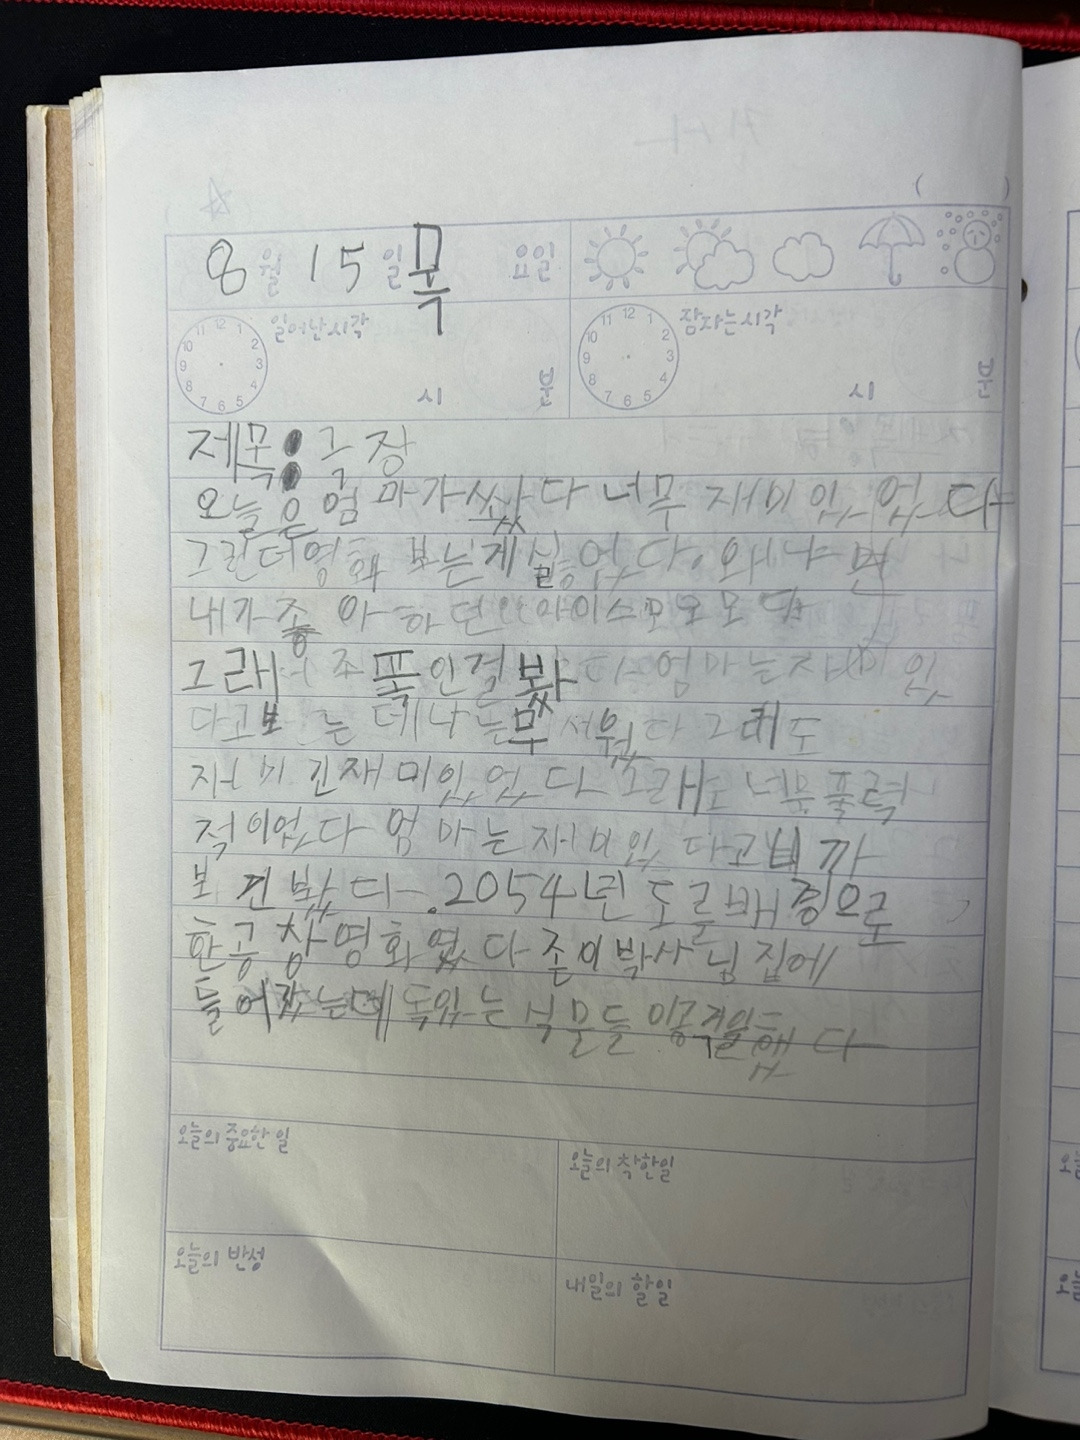 8월 15일 목요일
일어난시각 시 분
잠자는시각 시 분
제목: 극장
오늘은 엄마가 쐈다 너무 재미있었다
그런더 영화 보는게 실었다. 왜냐면
내가 좋아하던 아이스
그래 폭인걸 봤다 엄마는 재미있
다고 는데 나는 무서웠다 그래도
재미긴 재미있었다 그래도 너무 풀력
적이었다 엄마는 재미있다고
봤다. 2054년 도를 배경으로
한 공창영화였다 존이 박사님 집에
들어갔는데 독있는 식물들이 공격을 했다
오늘의 중요한 일
오늘의 착한일
오늘의 반성
내일의 할일